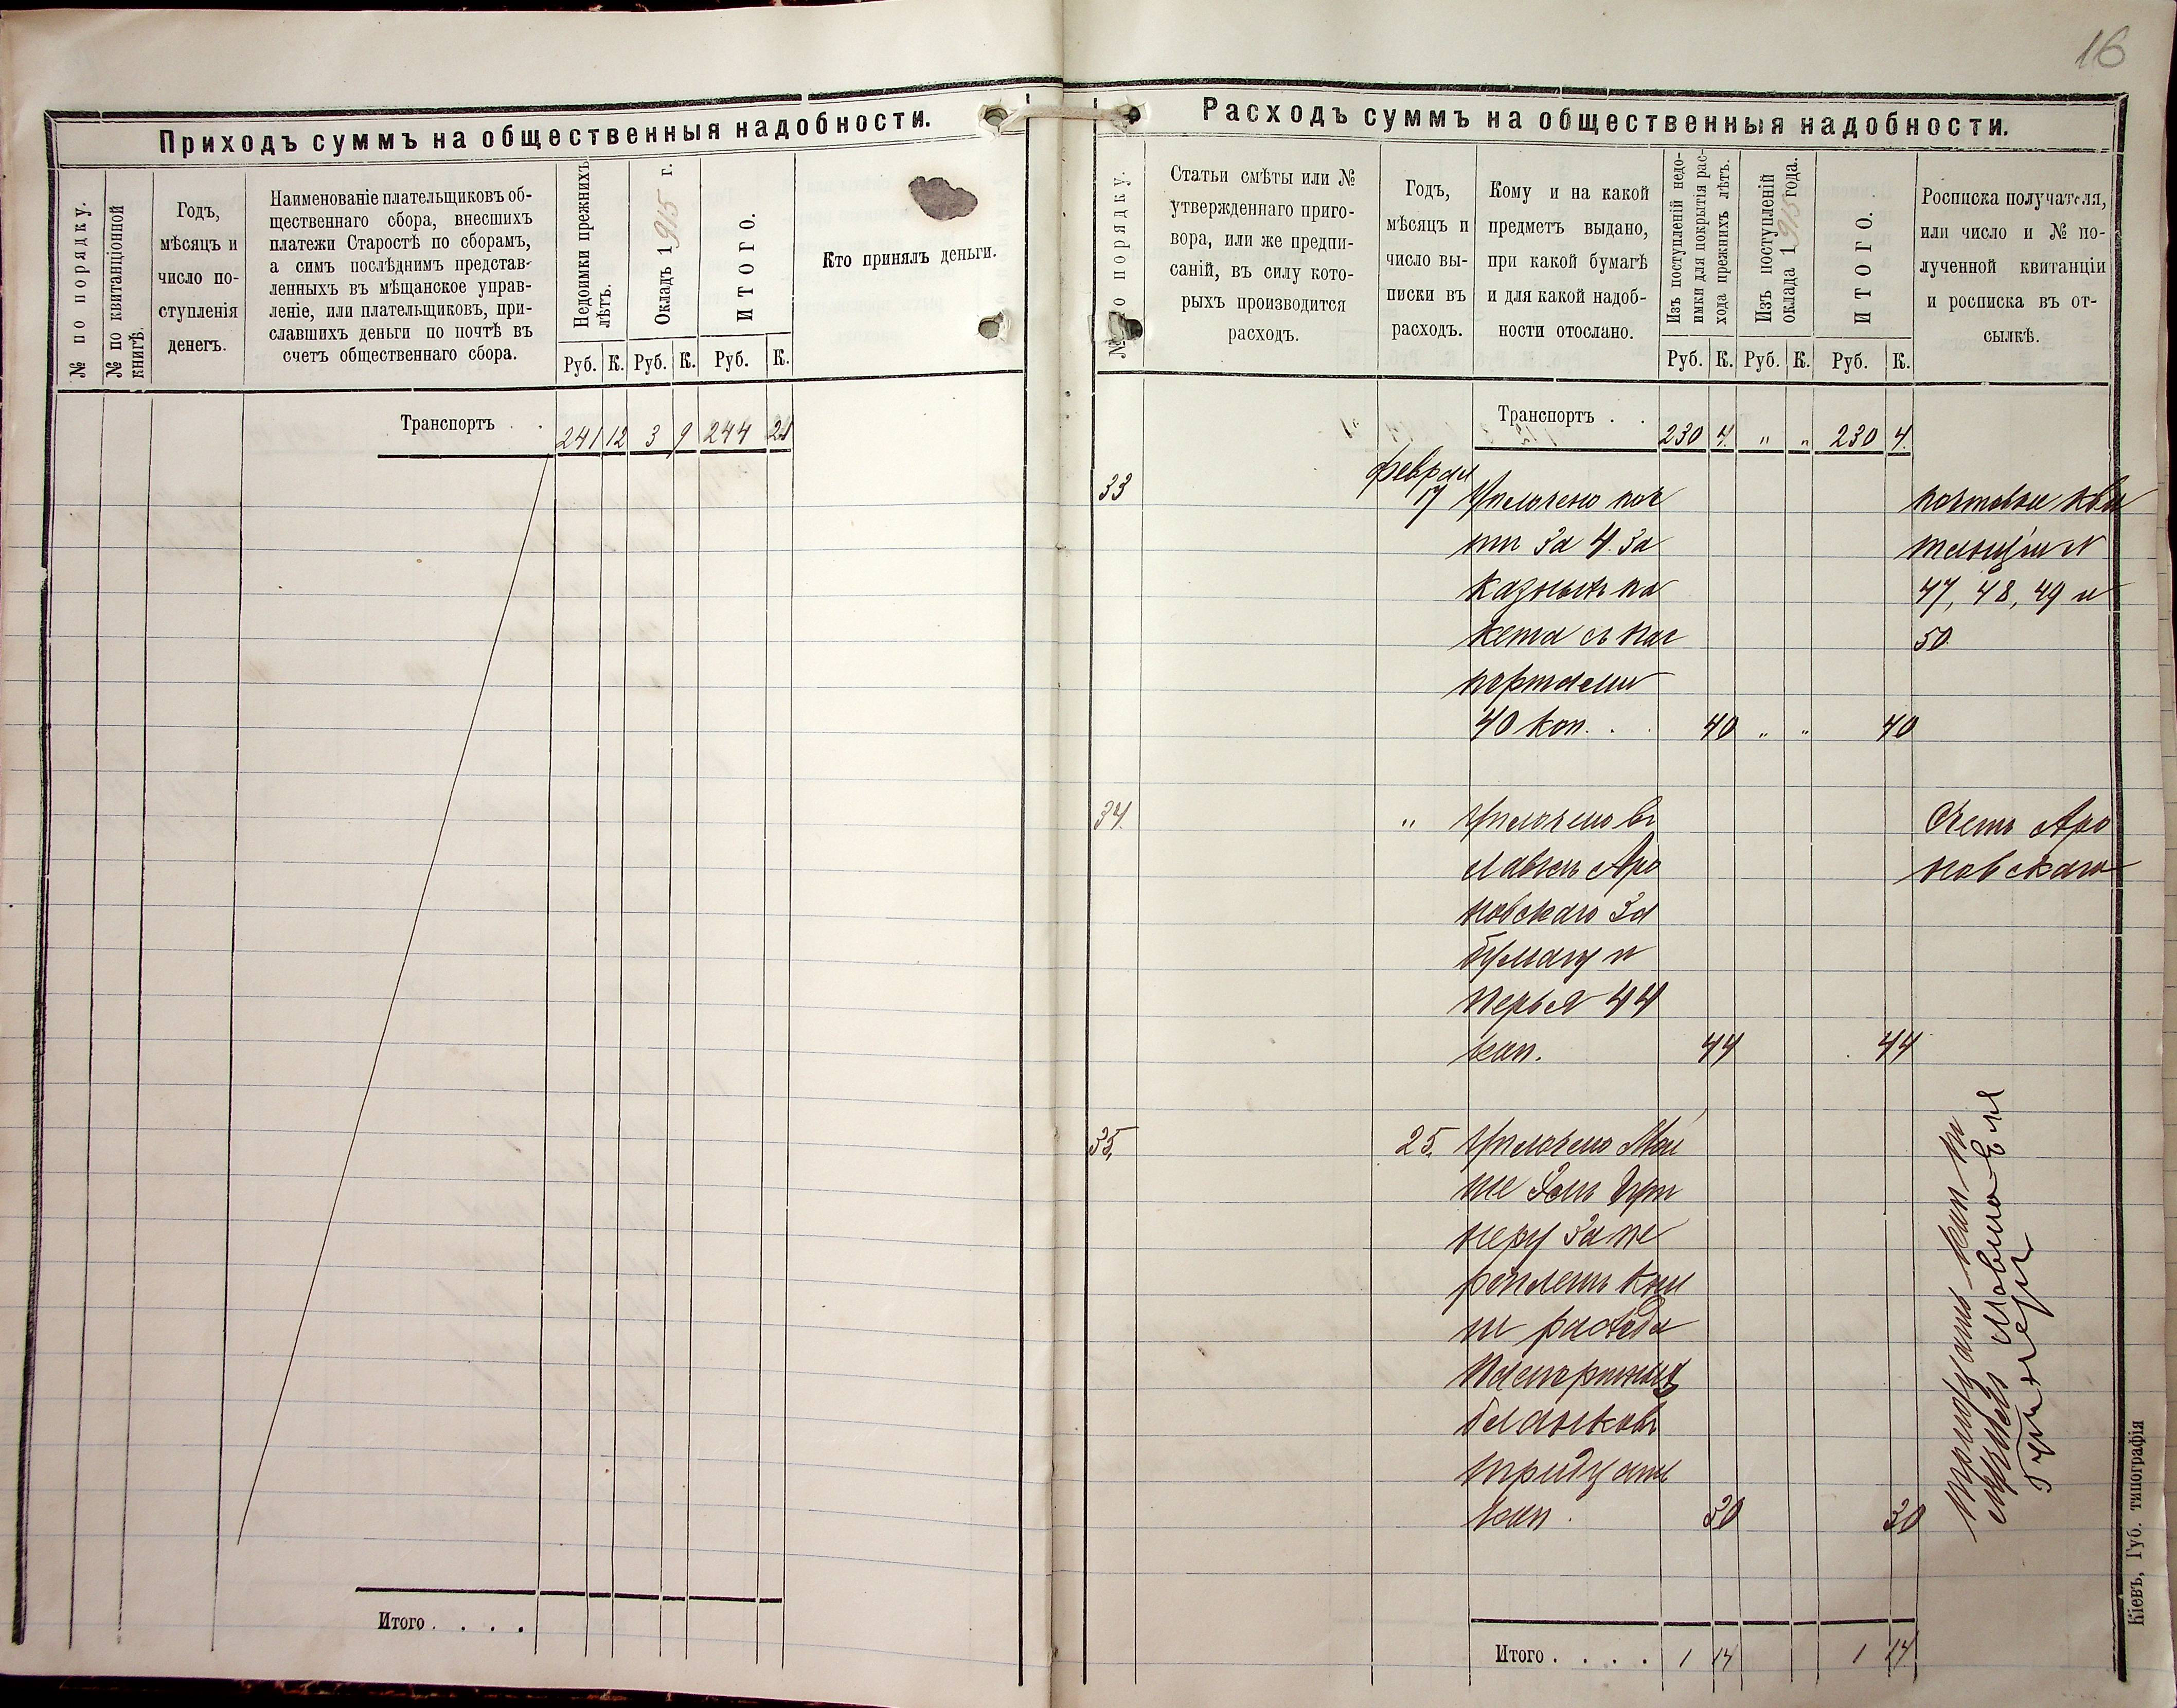 16
Приходъ суммъ на общественныя надобности.
№ по порядку.
№ по квитанціонной
книгѣ.
Годъ,
мѣсяцъ и
число по-
ступленія
денегъ.
Наименованіе плательщиковъ об-
щественнаго сбора, внесшихъ
платежи Старостѣ по сборамъ,
а симъ послѣднимъ представ-
ленныхъ въ мѣщанское управ-
леніе, или плательщиковъ, при-
славшихъ деньги по почтѣ въ
счетъ общественнаго сбора.
Недоимки прежнихъ
лѣтъ.
Окладъ 1915 г.
ИТОГО.
Кто принялъ деньги.
Руб. К. Руб. К. Руб. К.
Транспортъ . . 241 12 3 9 244 21
Итого . . . .
Расходъ суммъ на общественныя надобности.
№ по порядку.
Статьи смѣты или №
утвержденнаго приго-
вора, или же предпи-
саній, въ силу кото-
рыхъ производится
расходъ.
Годъ,
мѣсяцъ и
число вы-
писки въ
расходъ.
Кому и на какой
предметъ выдано,
при какой бумагѣ
и для какой надоб-
ности отослано.
Изъ поступленій недо-
имки для покрытія рас-
хода прежнихъ лѣтъ.
Изъ поступленій
оклада 1915 года.
ИТОГО.
Росписка получателя,
или число и № по-
лученной квитанціи
и росписка въ от-
сылкѣ.
Руб. К. Руб. К. Руб. К.
Транспортъ . . 230 4. " " 230 4.
феврал
33 17 Уплочено поч почтовыя кви
ти за 4 за танціи №
казныхъ па 47, 48, 49 и
кета съ пас 50.
портами
40 коп. . . 40 " " 40
34. " Уплочено въ Счетъ Аро
лавкѣ Аро новскаго
новскаго за
бумагу и
перья 44
коп. 44 44
35. 25. Уплочено Мов
неру за пе
реплетъ кни
ги расхода
паспортныхъ
бланковъ
тридцать
коп. 30 30
тридцать коп.
Итого . . . . 1 14 1 14
Кіевъ, Губ. типографія